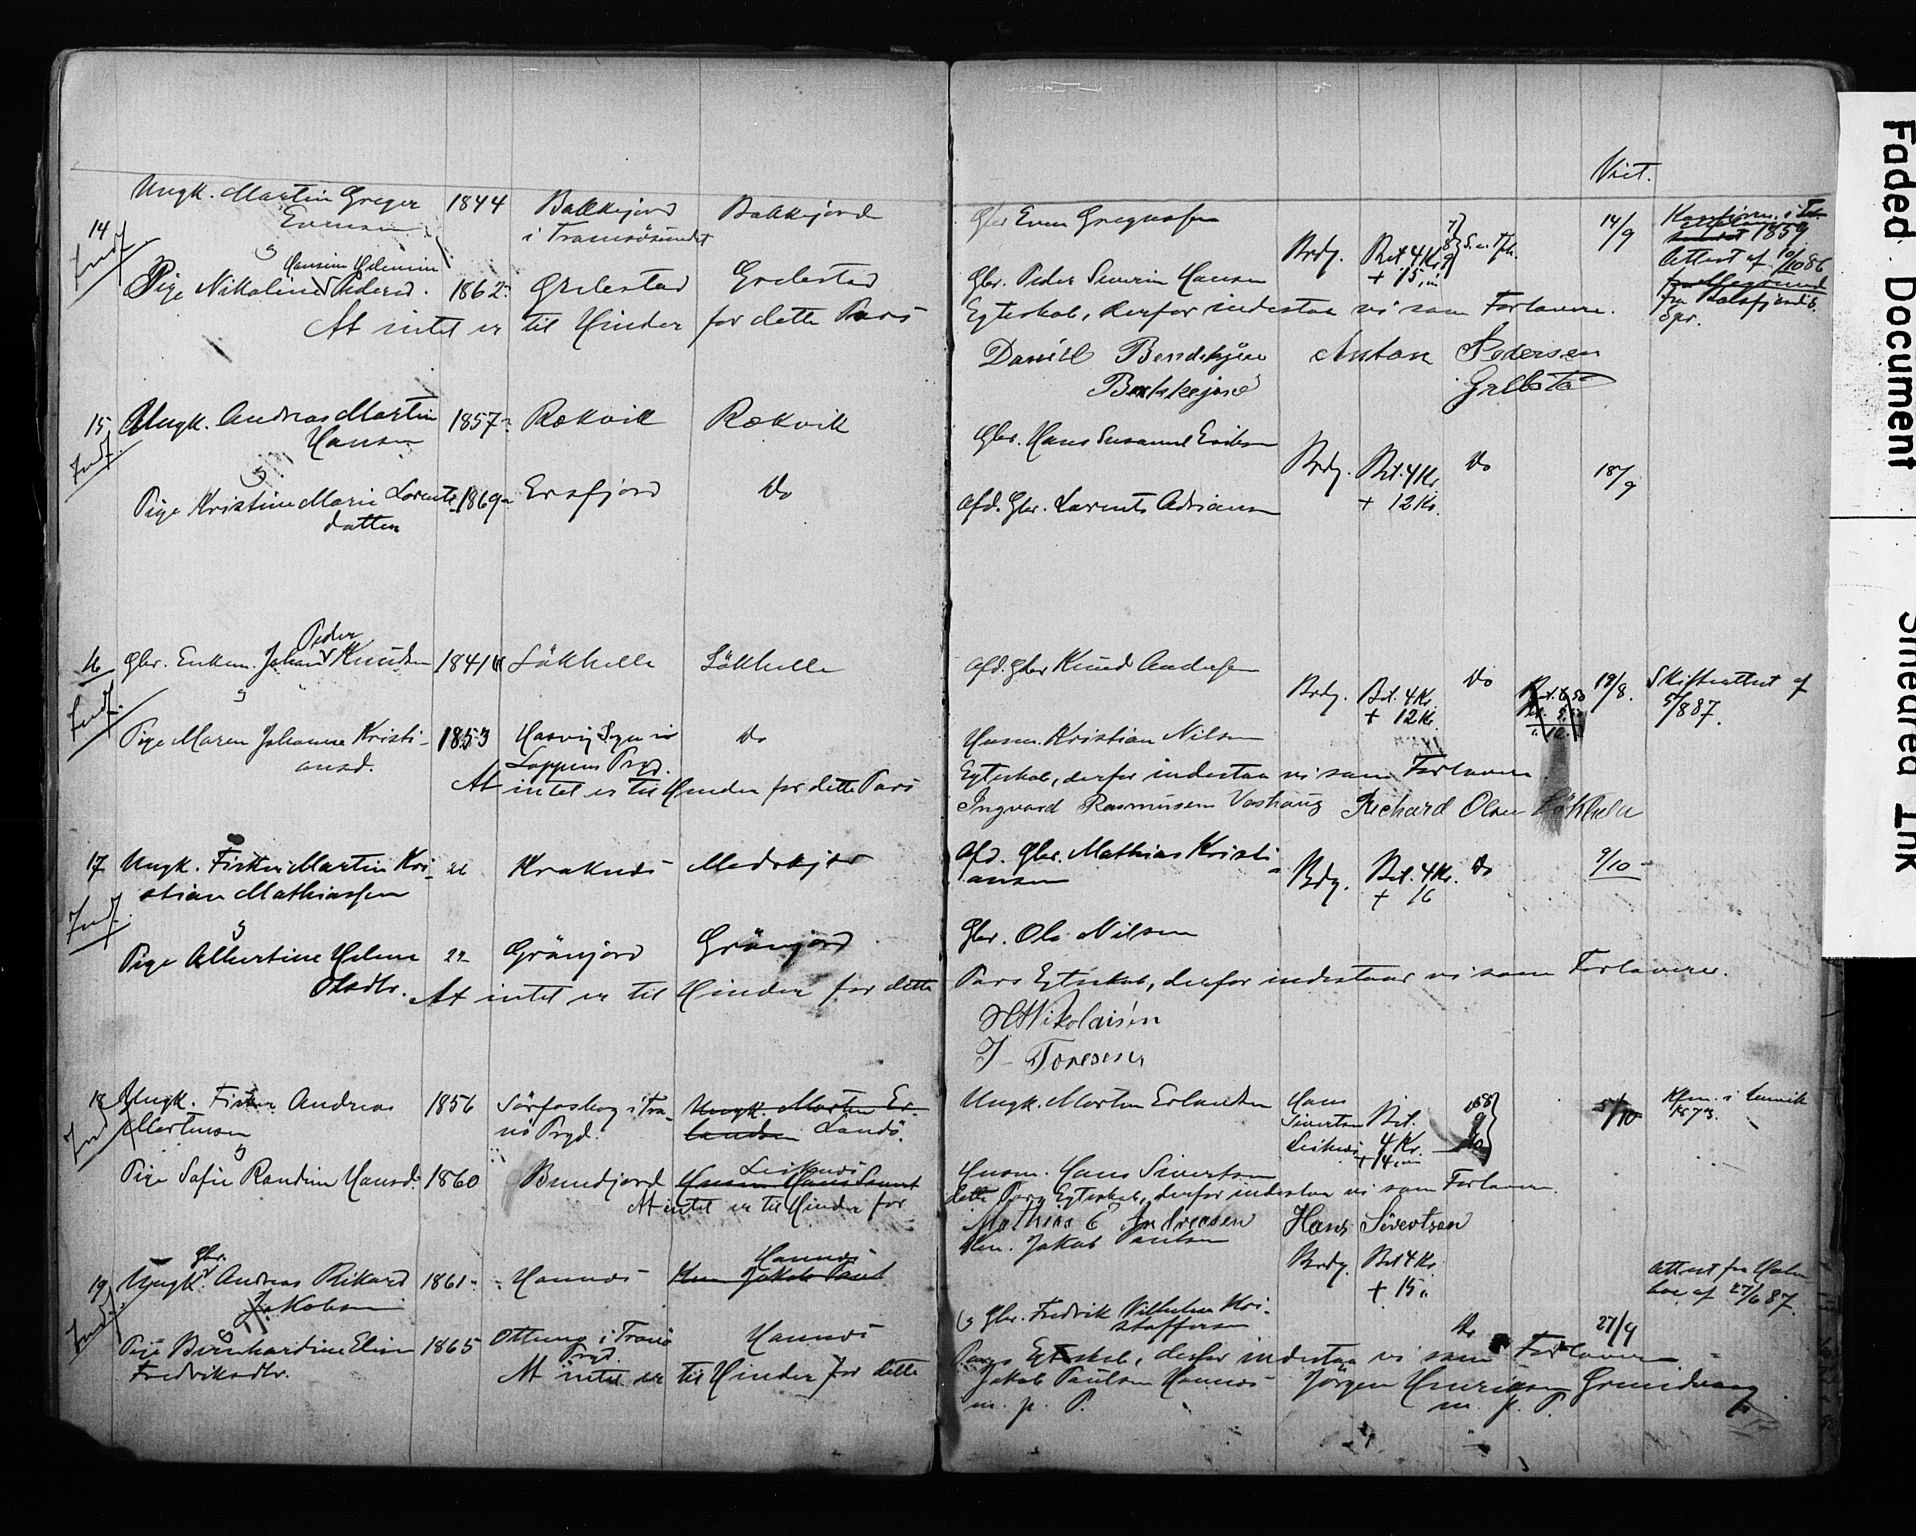 Vit.
14
Indf.
Ungk. Martin Greger
Evensen
1844
Bakkejord
i Tromsösundet
Bakkejord
Gbr Even Gregusen
Brdg.
Bet. 4 Kr.
+ 15,"
7
8
9
S. n. Tr.
14/9
Konfirm. i
1859
Attest af 10/10 86
fra Balsfjordens
Spr.
og
Hansine Helmine
Pige Nikoline Pedersd.
1862
Grebestad
Grebestad
Gbr. Peder Severin Hansen
At intet er til Hinder for dette Pars
Egteskab, derfor indestaa vi som Forlovere.
Daniel Bendikjsen
Bakkejord
Anton Pedersen
15
Indf.
Ungk. Andreas Martin
Hansen
1857
Rækvik
Rækvik
Gbr. Hans Susanus Eriksen
Brdg.
Bet. 4 Kr.
+ 12 Kr.
do
18/9
og
Pige Kristine Marie Lorents
datter
1869
Ersfjord
do
Afd. Gbr. Lorents Adriansen
16
Indf.
Peder
Gbr. Enkem. Johan Knudsen
1841
Lökhelle
Lökhelle
Afd. Gbr Knud Andersen
Brdg.
Bet. 4 Kr.
+ 12 Kr.
do
18/8.
Skifteattest af
5/8 87.
og
Pige Maren Johanne Kristi-
ansd.
1853
Hasvig Sogn i
Loppens Prgd.
do
Husm. Kristian Nilsen
At intet er til Hinder for dette Pars
Egteskab, derfor indestaa vi som Forlovere
Ingvard Rasmusen Vashaug Richard Olsen Lökhela
17
Indf.
Ungk. Fisker Martin Kri-
stian Mathiassen
Kraknæs
Medskjer
Afd. Gbr. Mathias Kristi-
ansen
Brdg.
Bet. 4 Kr.
+ 16
do
9/10
og
Pige Albertine Helene
Olsdtr.
22
Grönjord
Grönjord
Gbr. Ole Nilsen
At intet er til Hinder for dette
Pars Egteskab, derfor indestaar vi som Forlovere.
H Nikolaisen
J Toresen
18
Indf.
Ungk. Fisker Andreas
Mortensen
1856
Sörfoshog i Tra-
nö Prgd.
Ungk. Morten Er-
landsen Landö.
Ungk. Morten Erlandsen
Hans
Sivertsen
Leiknæs
Bet.
4 Kr.
+ 14,"
9
5/10
Kfm. i Lenvik
1873.
og
Pige Sofie Randine Hansd.
1860
Bundjord
Leiknæs
Husm. Hans Sivert
Husm. Hans Sivertsen
At intet er til Hinder for
dette Pars Egteskab, derfor indestaa vi som Forlovere.
Mathias E Andreasen Hans Sivertsen
19
Indf.
Gbr.
Ungk. Andreas Rikard
Jakobsen
1861
Hannæs
Hannæs
Jakob Paul
Jakob Paulsen
Brdg.
Bet 4 Kr.
+ 15 "
do
27/9
Attest fra Holm
boe af 27/6 87.
og
Pige Bernhardine Elise
Fredriksdtr.
1865
Ottung i Tranö
Prgd.
Hannæs
Gbr. Fredrik Vilhelm Kri-
stoffersen
At intet er til Hinder for dette
Pars Egteskab, derfor indestaa vi som Forlovere
Jakob Paulsen Hannæs Jørgen Henriksen Grundvaag
m. p. P. m. p. P.
Faded Document
Smeared Ink